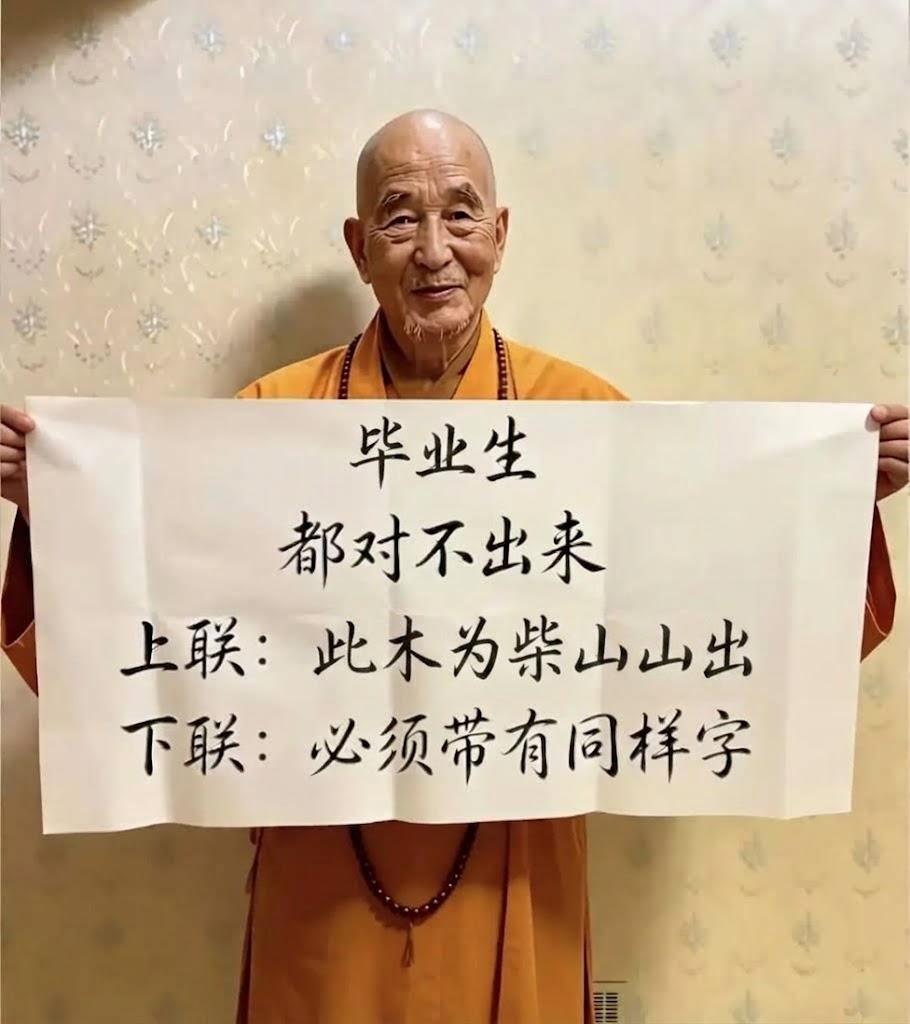 毕业生
都对不出来
上联：此木为柴山山出
下联：必须带有同样字